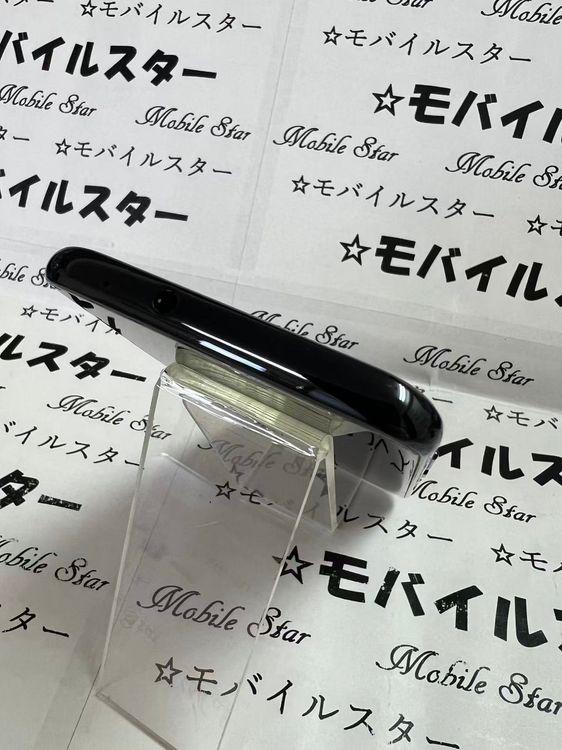 ☆モバイルスター
Mobile Star
☆モバイルスター
バイルスター
Mobile Star
Mobile Star
☆モバイルスター
Mobile Star
☆モバイルスター
Mobile Star
☆モバイルスター
イルスター
☆モバイル
☆モバイル
Mobile Star
Mobile Star
☆モバイ
ルスター
Mobile Star
☆モ
バイルスター
モバイルス
Mobile Star
Mobile Star
☆モ
ルスター
☆モ
ター
☆モバイルス
Mobile Star
Mobile Star
Mobile Star
ター
☆モバイルスター